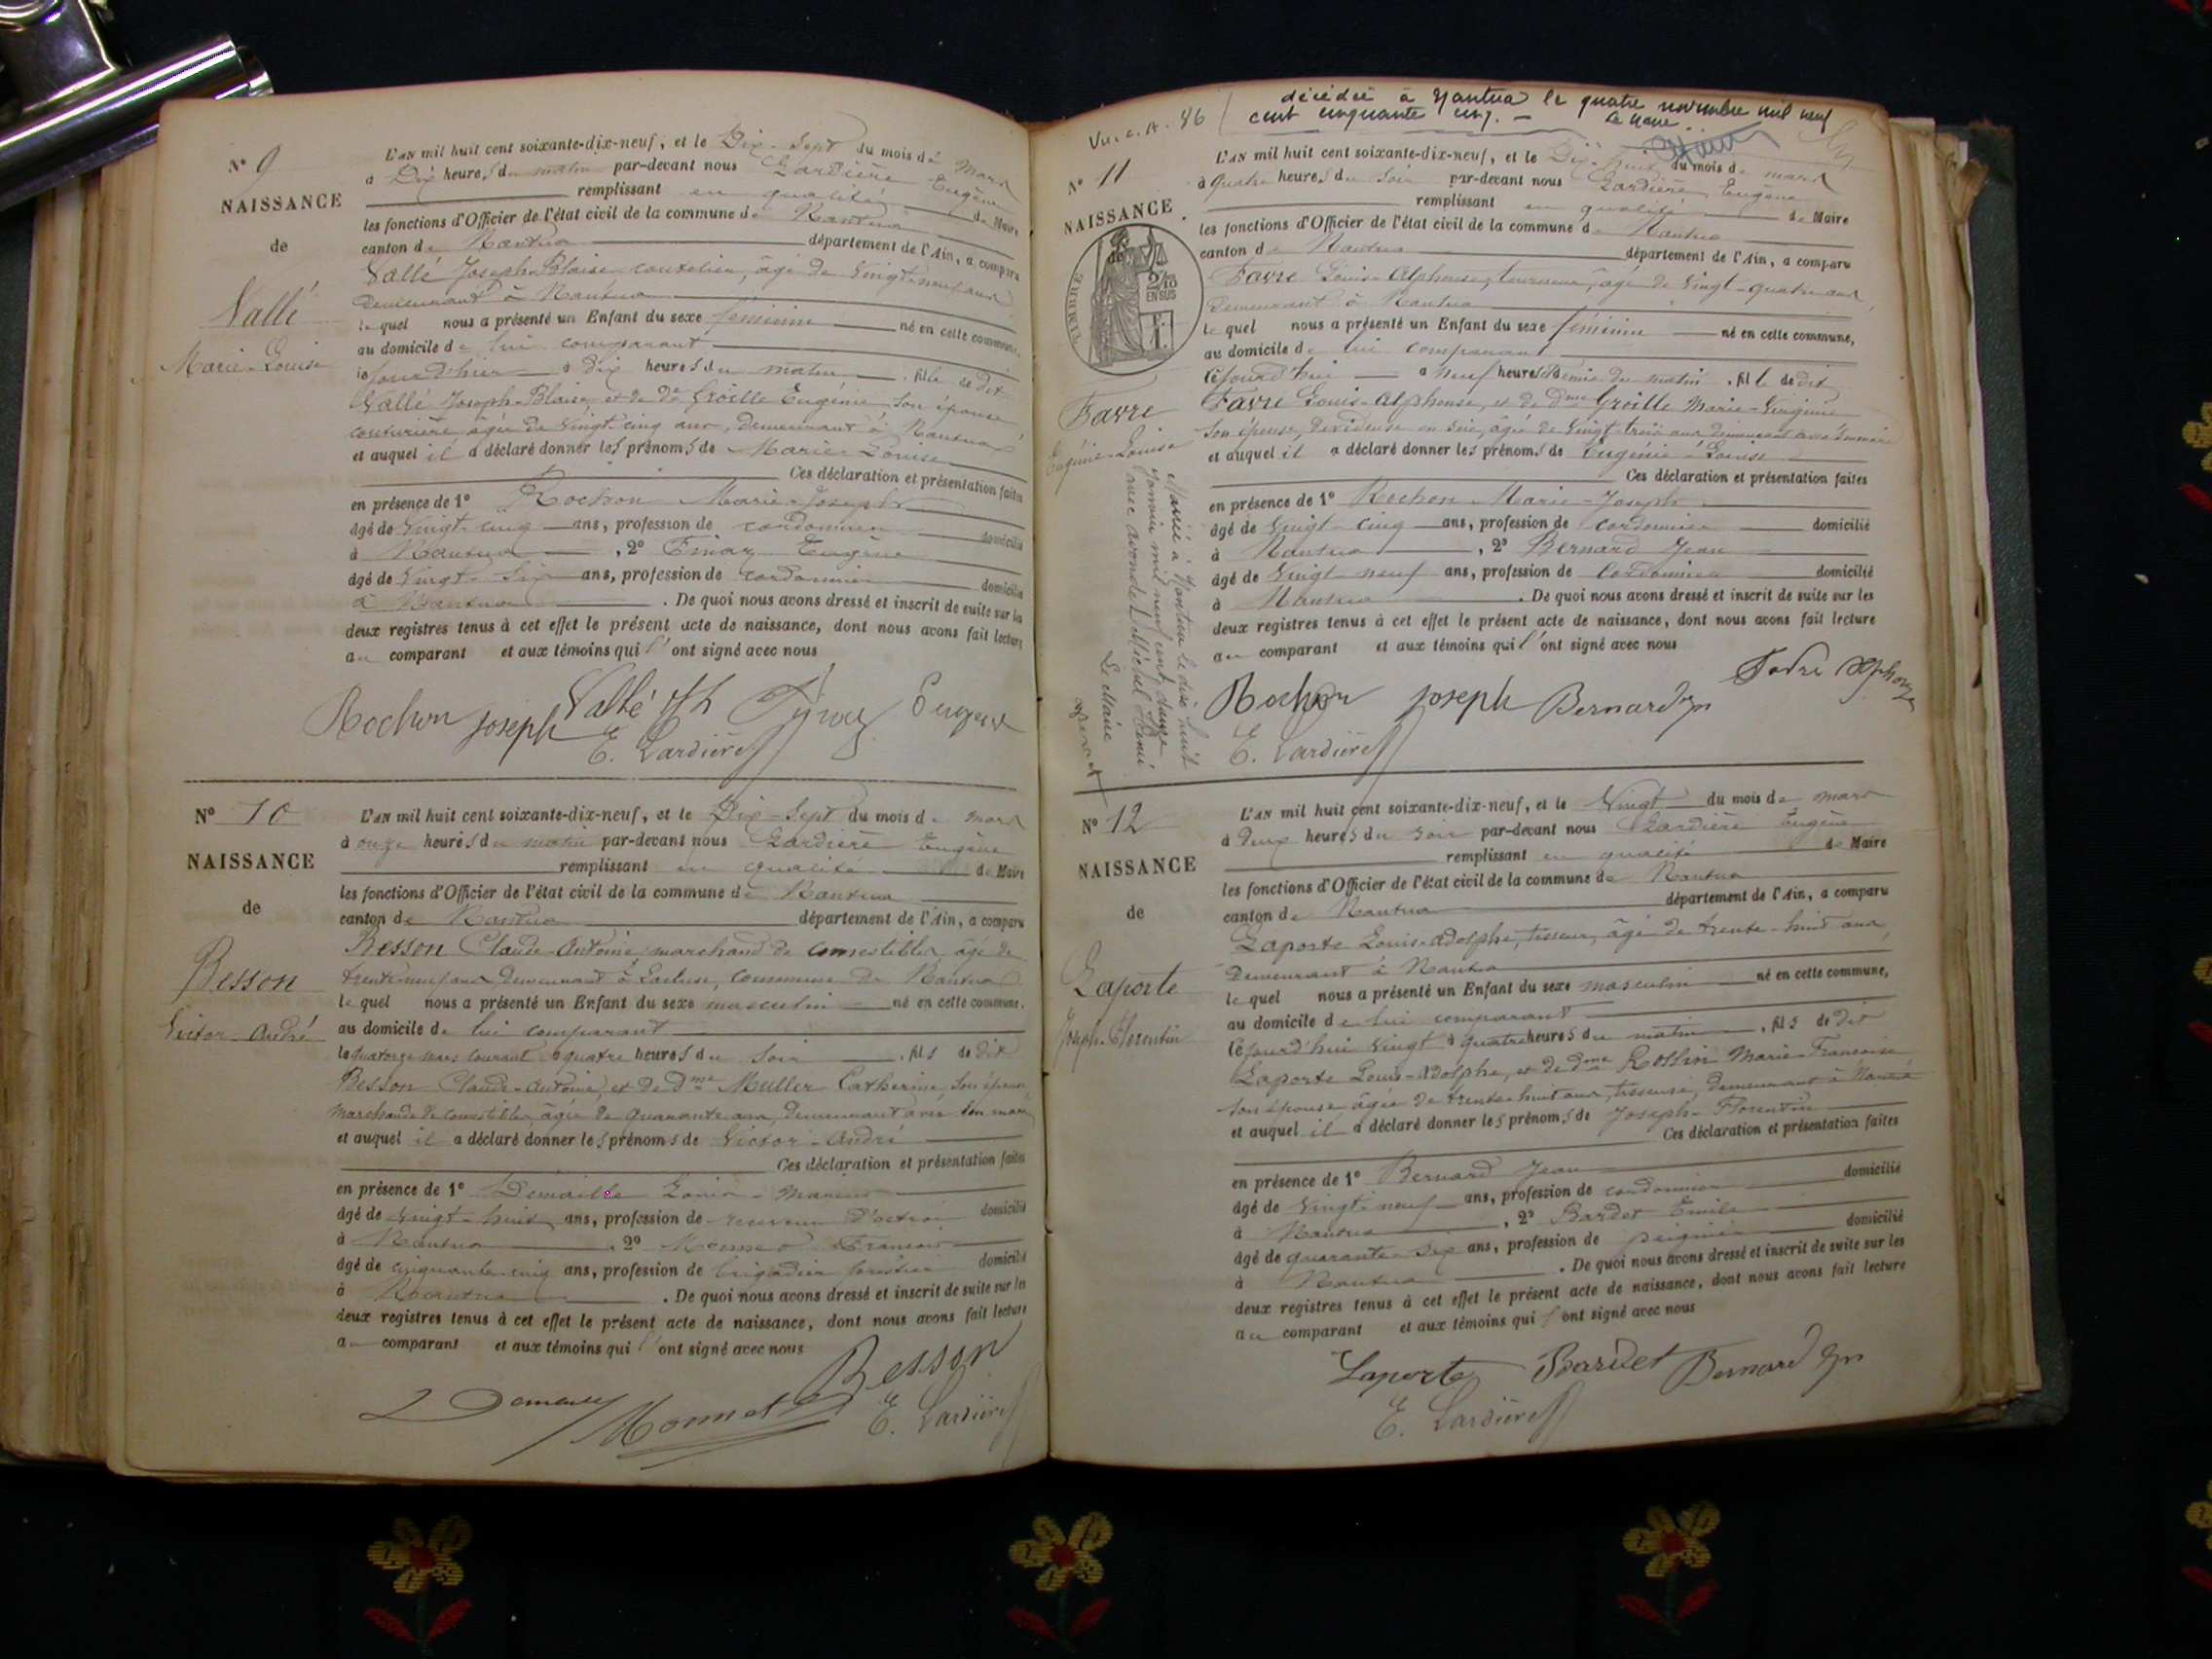 N° 9
NAISSANCE
de
Vallé
Marie-Louise
L'AN mil huit cent soixante-dix-neuf, et le Dix-Sept du mois de mars
à Dix heures du matin par-devant nous Lardière Eugène
remplissant en qualité de Maire
les fonctions d'Officier de l'état civil de la commune de Nantua
canton de Nantua département de l'Ain, a comparu
Vallé Joseph-Blaise coutelier, âgé de vingt-neuf ans
demeurant à Nantua
lequel nous a présenté un Enfant du sexe féminin né en cette commune,
au domicile de lui comparant
le jour d'hier à dix heures du matin, fille de dit
Vallé Joseph-Blaise, et de de Groille Eugénie son épouse
couturière âgée de vingt cinq ans, demeurant à Nantua
et auquel il a déclaré donner les prénoms de Marie-Louise
Ces déclaration et présentation faites
en présence de 1° Rochon Marie-Joseph
âgé de vingt-cinq ans, profession de cordonnier domicilié
à Nantua, 2° Eugène
âgé de vingt-six ans, profession de cordonnier domicilié
à Nantua. De quoi nous avons dressé et inscrit de suite sur les
deux registres tenus à cet effet le présent acte de naissance, dont nous avons fait lecture
au comparant et aux témoins qui l' ont signé avec nous
Rochon Joseph Vallé Eugène
E. Lardière
N° 10
NAISSANCE
de
Besson
Victor-André
L'AN mil huit cent soixante-dix-neuf, et le Dix-Sept du mois de mars
à onze heures du matin par-devant nous Lardière Eugène
remplissant en qualité de Maire
les fonctions d'Officier de l'état civil de la commune de Nantua
canton de Nantua département de l'Ain, a comparu
Besson Claude-Antoine, marchand de comestibles âgé de
trente-neuf ans demeurant à Lacluse, commune de Nantua
lequel nous a présenté un Enfant du sexe masculin né en cette commune,
au domicile de lui comparant
le quatorze mars courant à quatre heures du soir, fils de dit
Besson Claude-Antoine, et de dme Muller Catherine, son épouse,
marchande de comestibles, âgée de quarante ans, demeurant avec son mari
et auquel il a déclaré donner les prénoms de Victor-André
Ces déclaration et présentation faites
en présence de 1° Louis-Marius
âgé de vingt-huit ans, profession de receveur d'octroi domicilié
à Nantua, 2° Monnet François
âgé de cinquante-cinq ans, profession de brigadier forestier domicilié
à Nantua. De quoi nous avons dressé et inscrit de suite sur les
deux registres tenus à cet effet le présent acte de naissance, dont nous avons fait lecture
au comparant et aux témoins qui l' ont signé avec nous
Besson
Monnet E. Lardière
Vu. c. A. 86
décédée à Nantua le quatre novembre mil neuf
cent cinquante cinq. - Le Maire.
N° 11
NAISSANCE
de
TIMBRE
2/10
EN SUS
Favre
Eugénie-Louise
Mariée à Nantua le dix huit
janvier mil neuf cent douze
avec
Le Maire
L'AN mil huit cent soixante-dix-neuf, et le Dix-huit du mois de mars
à quatre heures du soir par-devant nous Lardière Eugène
remplissant en qualité de Maire
les fonctions d'Officier de l'état civil de la commune de Nantua
canton de Nantua département de l'Ain, a comparu
Favre Louis-Alphonse, tourneur, âgé de vingt-quatre ans,
demeurant à Nantua
lequel nous a présenté un Enfant du sexe féminin né en cette commune,
au domicile de lui comparant
le jourd'hui à neuf heures demie du matin, fille de dit
Favre Louis-Alphonse, et de dme Groille Marie-Virginie
son épouse, dévideuse en soie, âgée de vingt-trois ans demeurant avec son mari
et auquel il a déclaré donner les prénoms de Eugénie-Louise
Ces déclaration et présentation faites
en présence de 1° Rochon Marie-Joseph
âgé de vingt-cinq ans, profession de cordonnier domicilié
à Nantua, 2° Bernard Jean
âgé de vingt-neuf ans, profession de cordonnier domicilié
à Nantua. De quoi nous avons dressé et inscrit de suite sur les
deux registres tenus à cet effet le présent acte de naissance, dont nous avons fait lecture
au comparant et aux témoins qui l' ont signé avec nous
Rochon Joseph Bernard Jn Favre Alphonse
E. Lardière
N° 12
NAISSANCE
de
Laporte
Joseph-Florentin
L'AN mil huit cent soixante-dix-neuf, et le Vingt du mois de mars
à deux heures du soir par-devant nous Lardière Eugène
remplissant en qualité de Maire
les fonctions d'Officier de l'état civil de la commune de Nantua
canton de Nantua département de l'Ain, a comparu
Laporte Louis-Adolphe, tisseur, âgé de trente-huit ans,
demeurant à Nantua
lequel nous a présenté un Enfant du sexe masculin né en cette commune,
au domicile de lui comparant
le jourd'hui vingt à quatre heures du matin, fils de dit
Laporte Louis-Adolphe, et de dme Marie-Françoise
son épouse âgée de trente-huit ans, tisseuse, demeurant à Nantua
et auquel il a déclaré donner les prénoms de Joseph-Florentin
Ces déclaration et présentation faites
en présence de 1° Bernard Jean
âgé de vingt-neuf ans, profession de cordonnier domicilié
à Nantua, 2° Bardet Emile
âgé de quarante-six ans, profession de peignier domicilié
à Nantua. De quoi nous avons dressé et inscrit de suite sur les
deux registres tenus à cet effet le présent acte de naissance, dont nous avons fait lecture
au comparant et aux témoins qui l' ont signé avec nous
Laporte Bardet Bernard Jn
E. Lardière